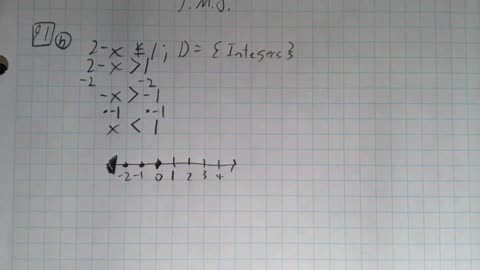 J.M.J.
21 b
2-x ≰ 1; D = {Integers}
2-x > 1
-2 -2
-x > -1
·-1 ·-1
x < 1
-2 -1 0 1 2 3 4